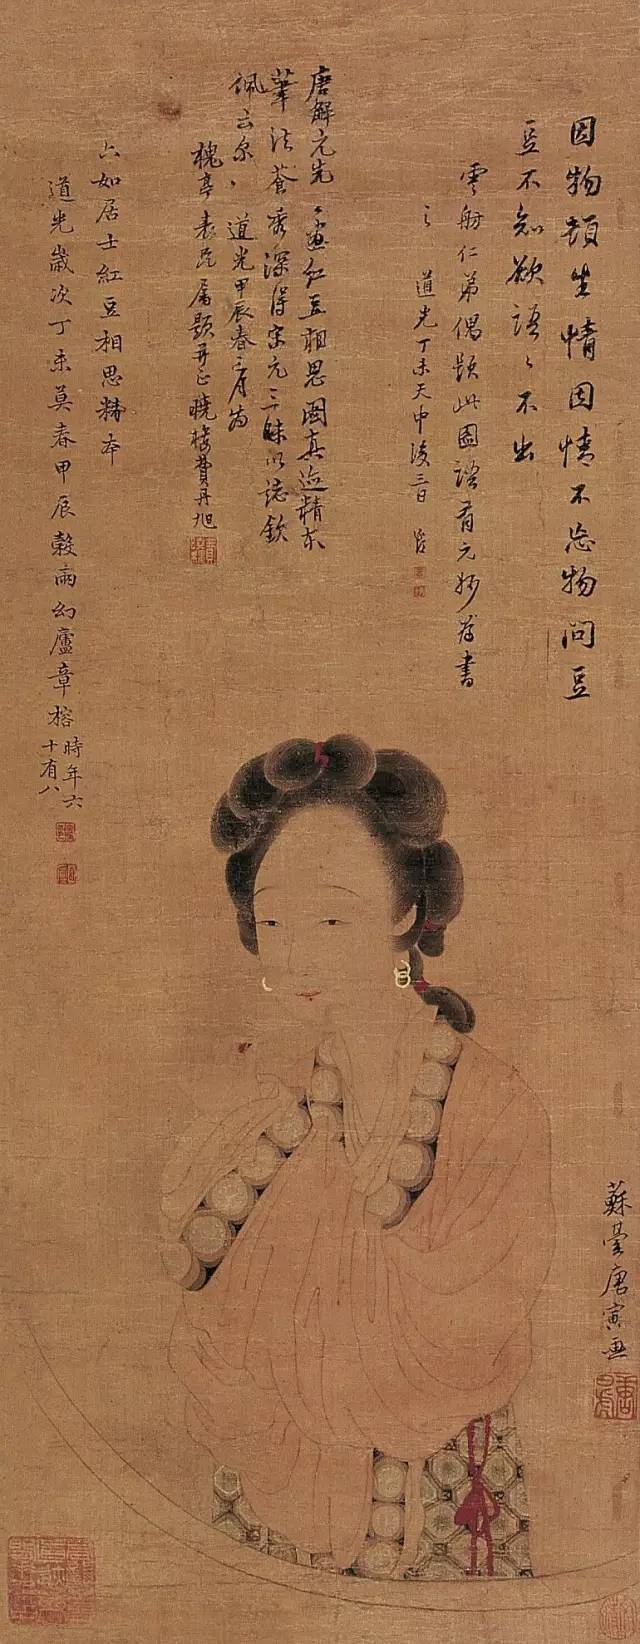 因物頓生情因情不忘物問豆
豆不知欲語〻不出
雩舫仁弟偶題此圖語有元妙為書
之 道光丁未天中後三日
唐解元先〻畫紅豆相思圖真迹精本
筆法蒼秀深得宋元三昧以誌欽
佩云尔〻道光甲辰春三月為
槐亭表兄屬題并正曉樓費丹旭
六如居士紅豆相思粉本
道光歲次丁未莫春甲辰穀雨幻廬章榕時年六
十有八
蘇臺唐寅畫
唐伯虎